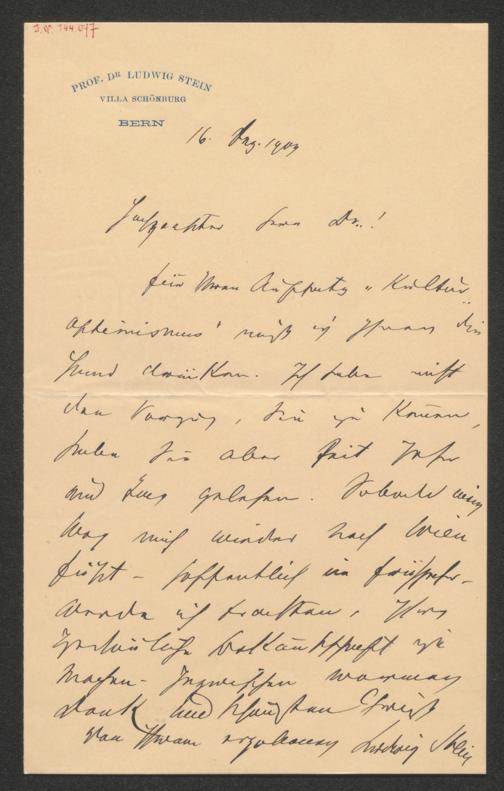 J.N. 144.077
PROF. DR LUDWIG STEIN
VILLA SCHÖNBURG
BERN
16. Dez. 1909
Hochgeehrter Herr Dr.!
Für Ihren Aufsatz „Kultur-
optimismus" muß ich Ihnen die
Hand drücken. Ich habe nicht
den Vorzug, Sie zu kennen,
habe Sie aber seit Jahr
und Tag gelesen. Sobald mein
Weg mich wieder nach Wien
führt – hoffentlich im Frühjahr –
werde ich trachten, Ihre
persönliche Bekanntschaft zu
machen. Inzwischen warmen
Dank und schönsten Gruß
von Ihrem ergebenen Ludwig Stein